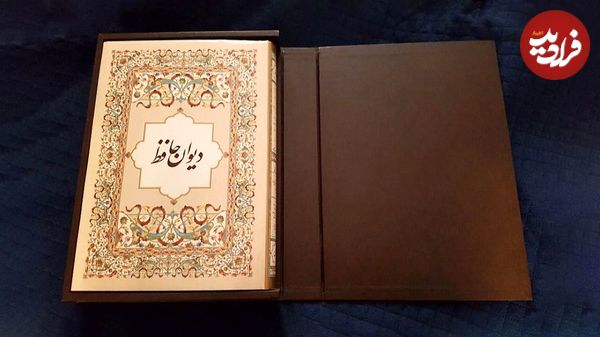 دیوان حافظ
فرادید